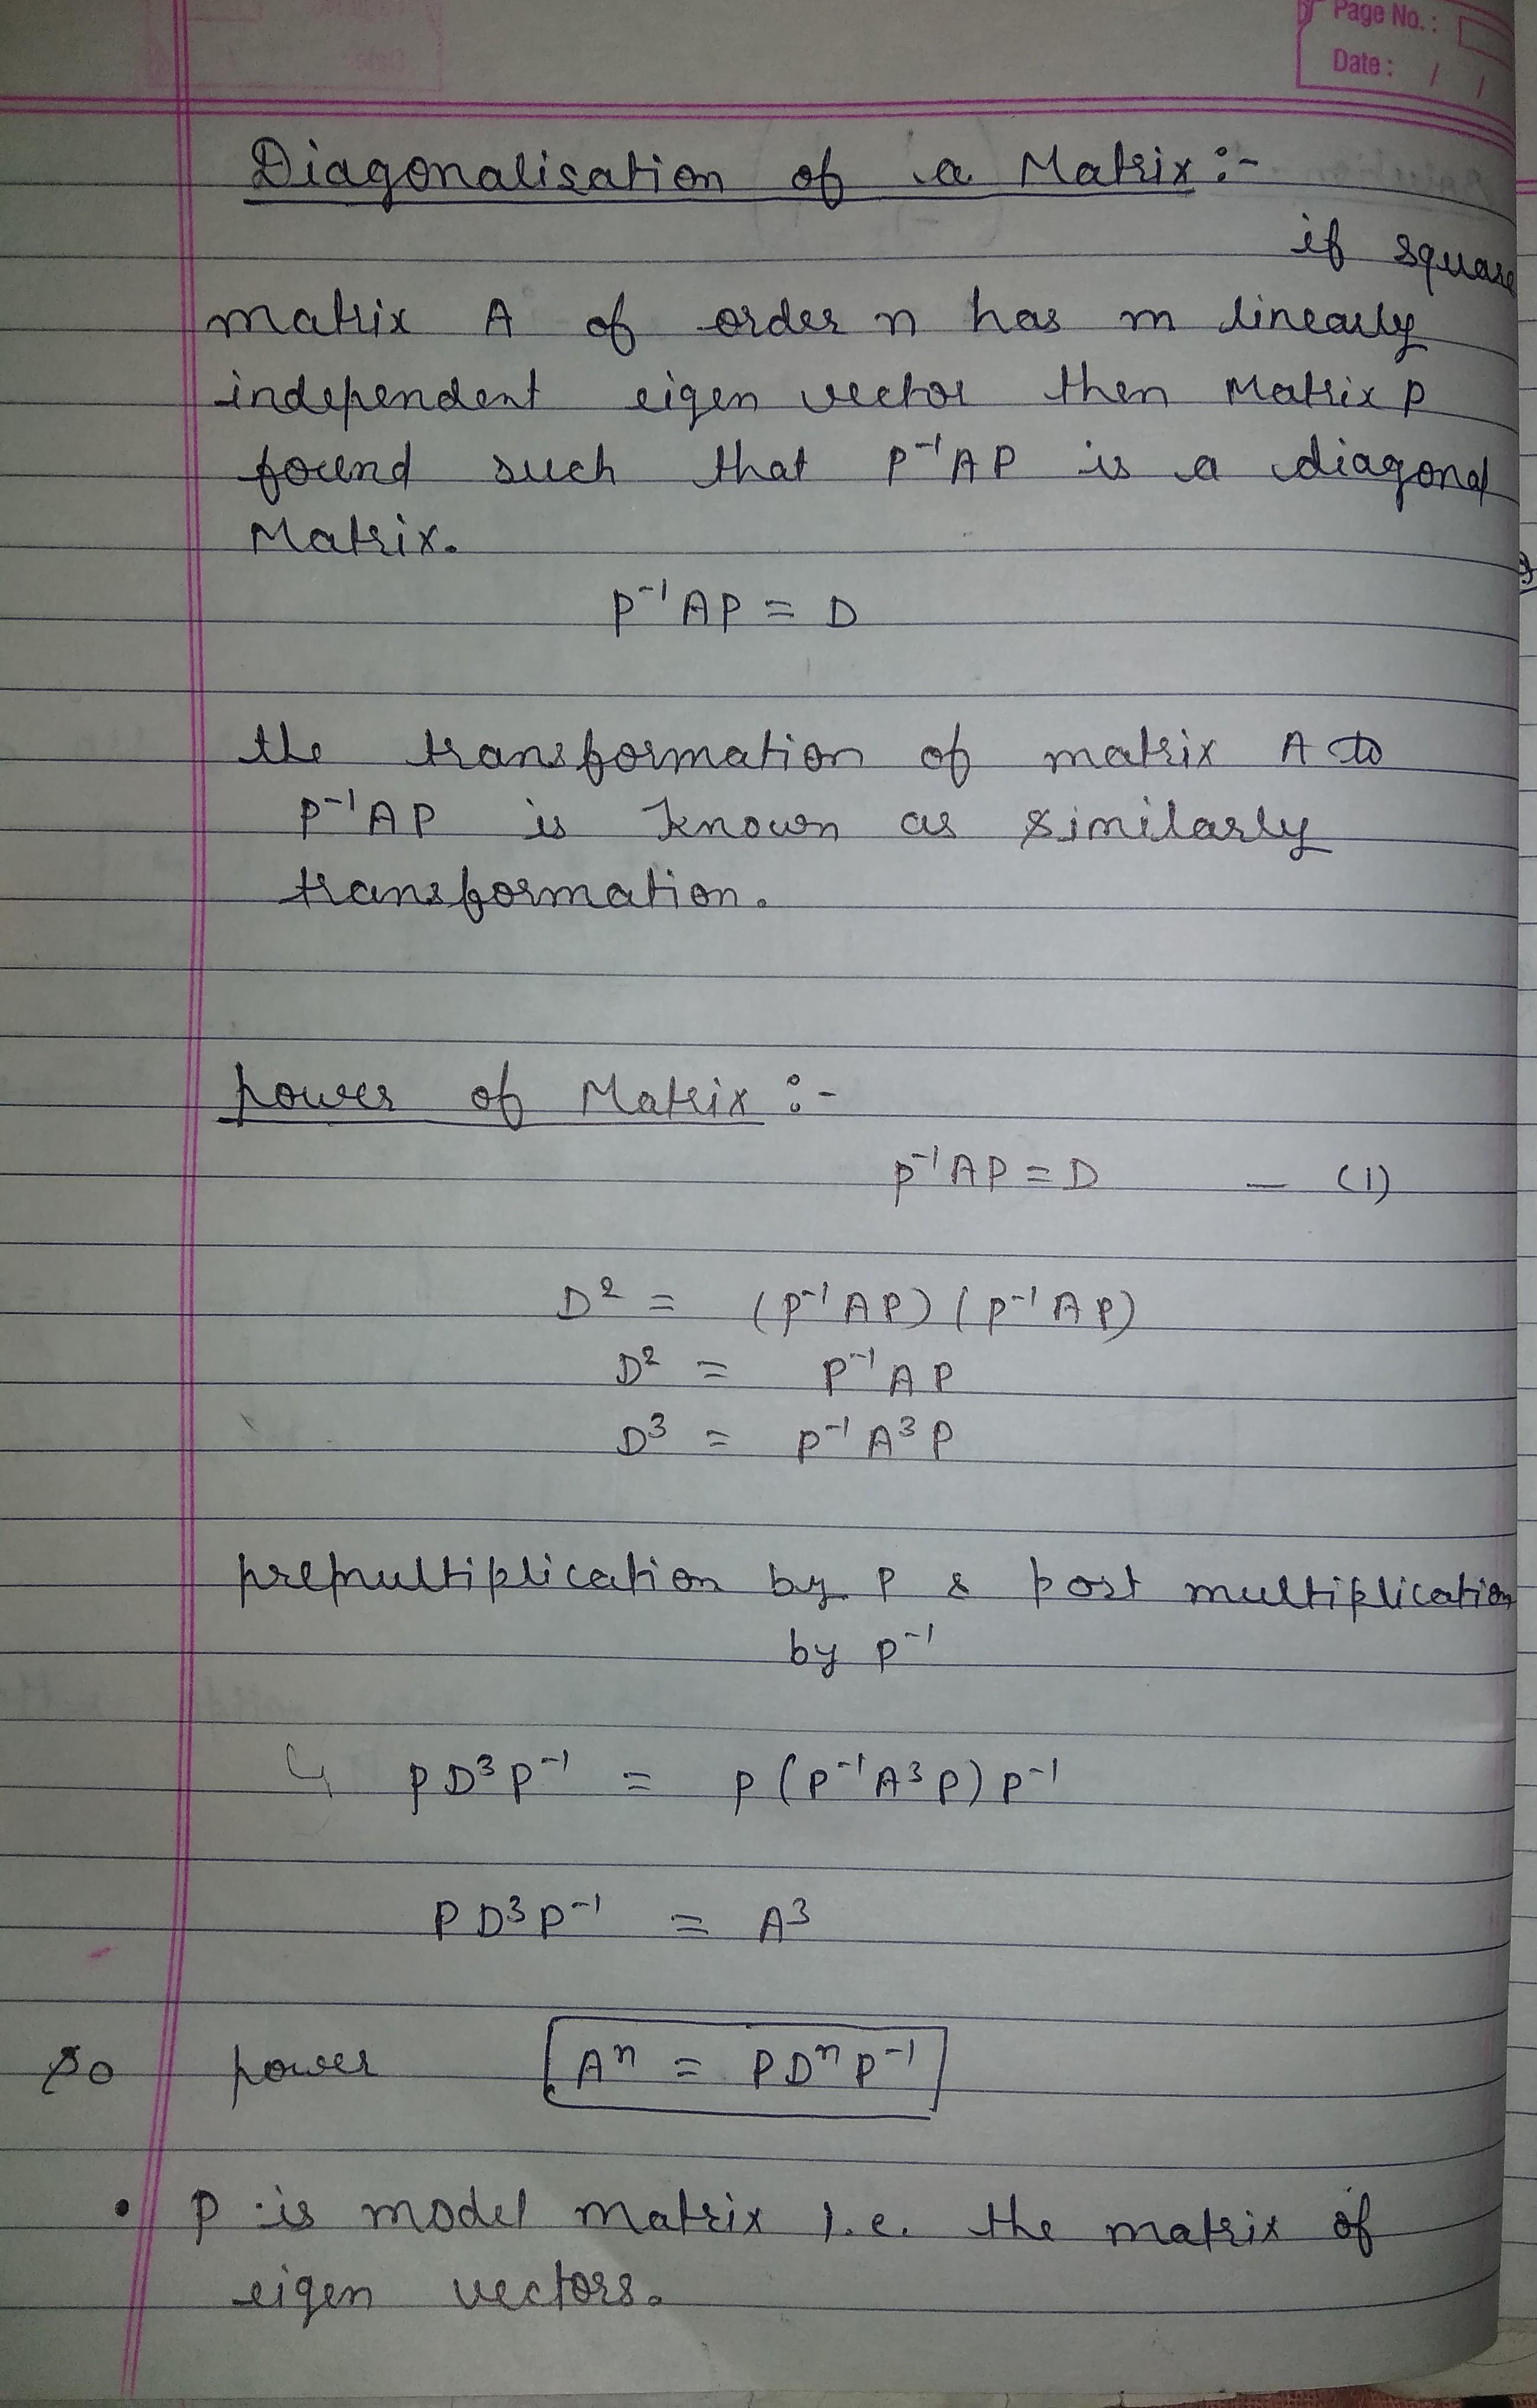 Page No.:
Date: / /
Diagonalisation of a Matrix :-
if square
matrix A of order n has m linearly
independent eigen vector then Matrix P
found such that P⁻¹AP is a diagonal
Matrix.
P⁻¹AP = D
the transformation of matrix A to
P⁻¹AP is known as similarly
transformation.
power of Matrix :-
P⁻¹AP = D — (1)
D² = (P⁻¹AP) (P⁻¹AP)
D² = P⁻¹AP
D³ = P⁻¹A³P
premultiplication by P & post multiplication
by P⁻¹
↳ PD³P⁻¹ = P(P⁻¹A³P)P⁻¹
PD³P⁻¹ = A³
So power Aⁿ = PDⁿP⁻¹
• P is model matrix i.e. the matrix of
eigen vectors.